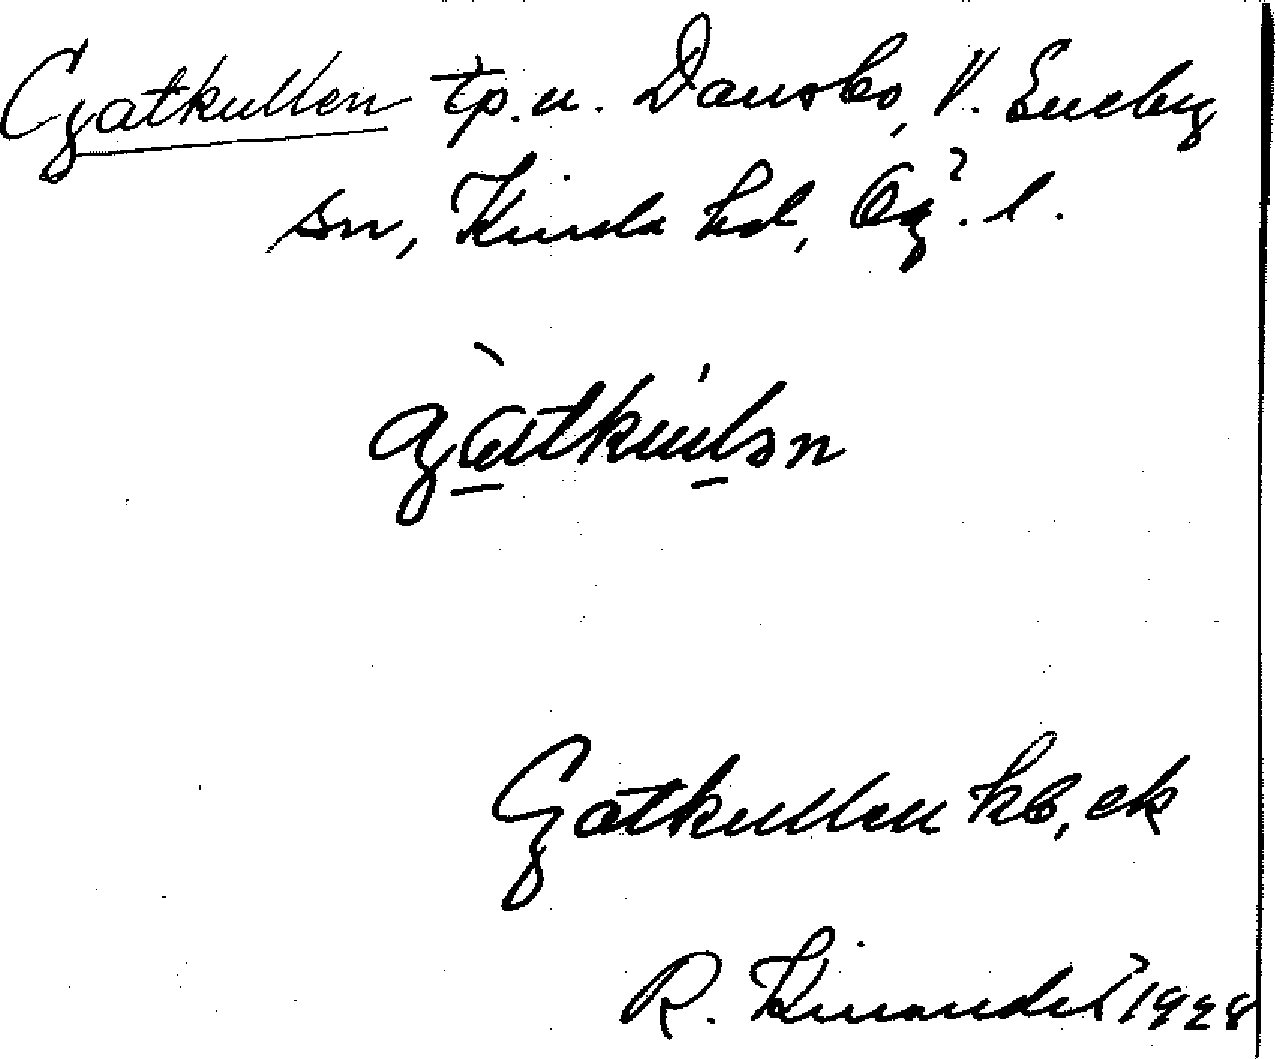 Gatkullen tp. u. Dansbo, V. Eneby
sn, Kinda hd, Ög. l.
gatkulən
Gatkullen hb, ek
R. Kinander 1928